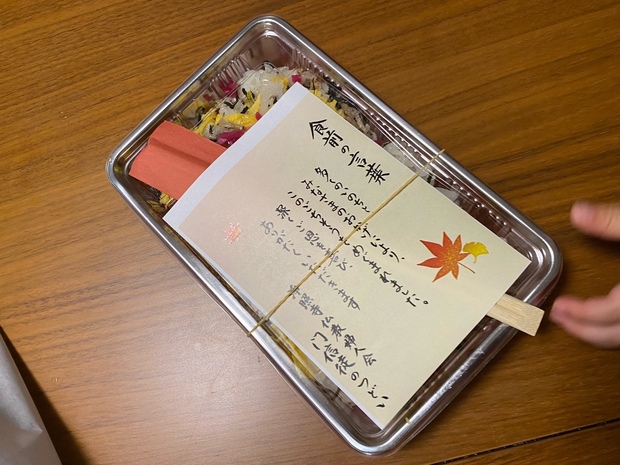 食前の言葉
多くのいのちと
みなさまのおかげにより、
このごちそうをめぐまれました。
深くご恩を喜び、
ありがたくいただきます
仏教婦人会
門信徒のつどい